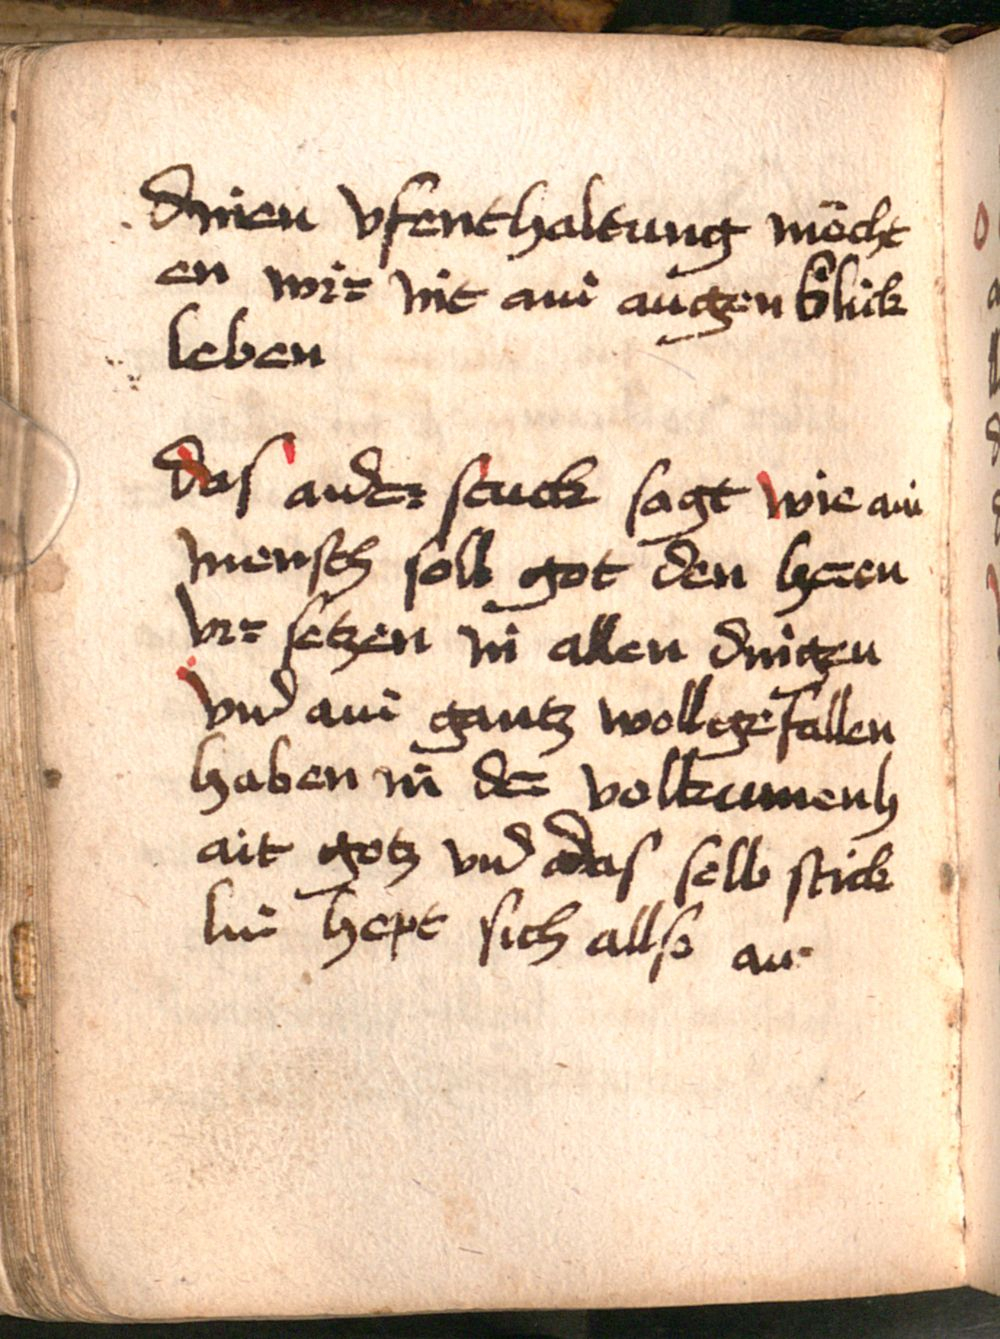 dinen vfenthaltung möcht
en wir nit ain augen blick
leben
das ander stuck sagt wie ain
mensch soll got den heren
vir setzen in allen dingen
vnd ain gantz wollgefallen
haben in der volkumenh
ait gotz vnd das selb stick
lin hept sich allso an